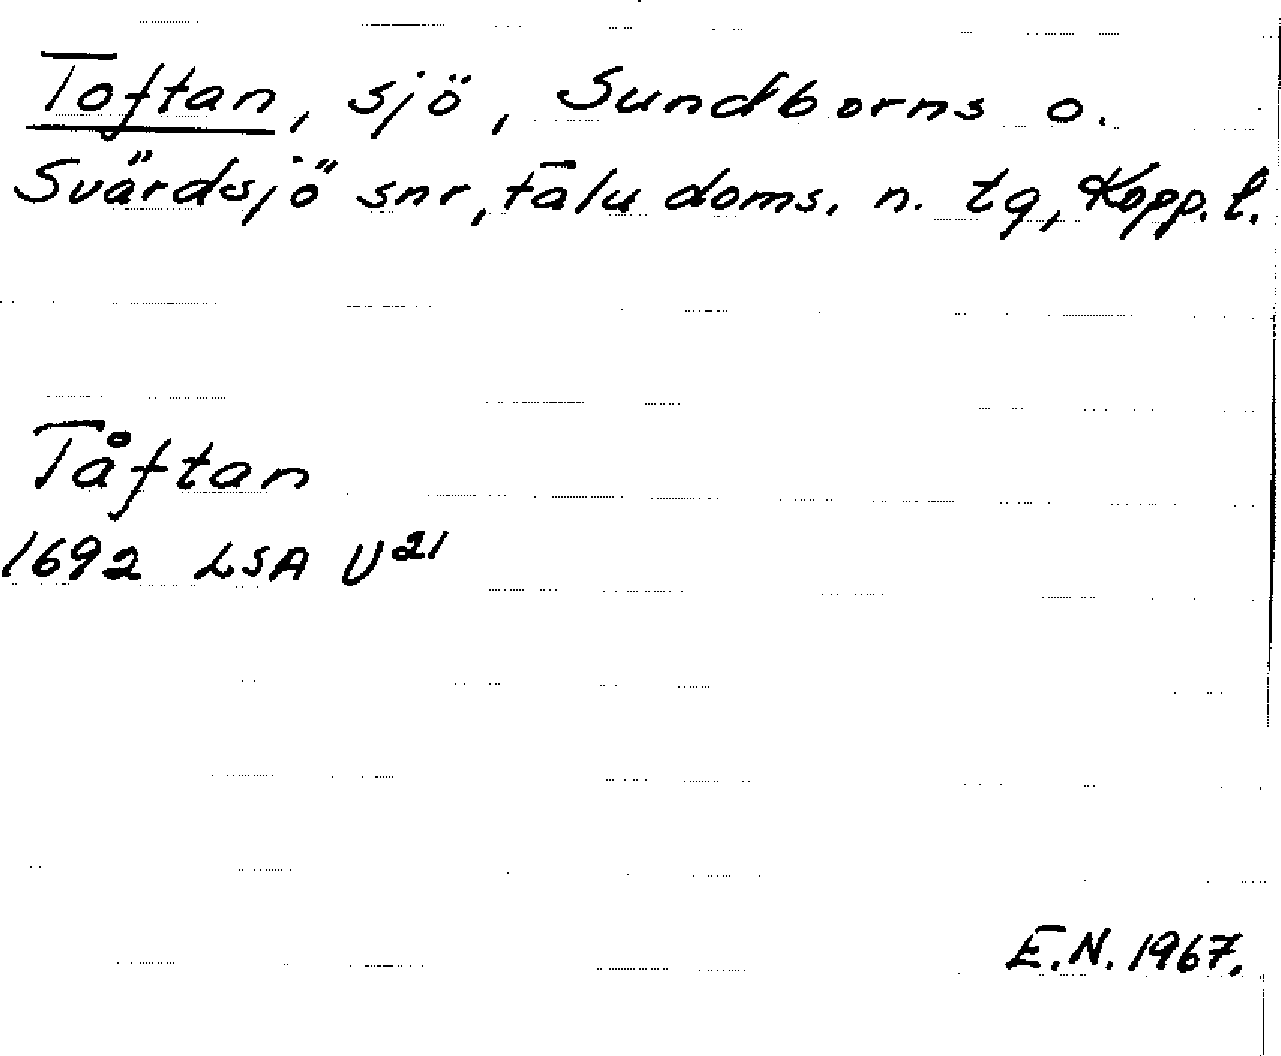 Toftan, sjö, Sundborns o.
Svärdsjö snr, Falu doms. n. tg, Kopp. l.
Tåftan
1692 LSA U²¹
E.N. 1967.